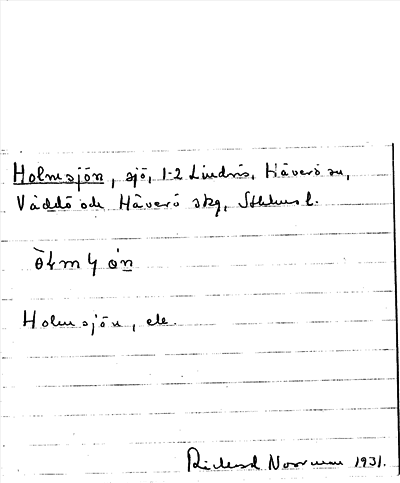 Holmsjön, sjö, 1-2 Lindris, Häverö sn,
Väddö och Häverö skg, Sthlms l.
Holmsjön, ek.
Rickard Norrman 1931.